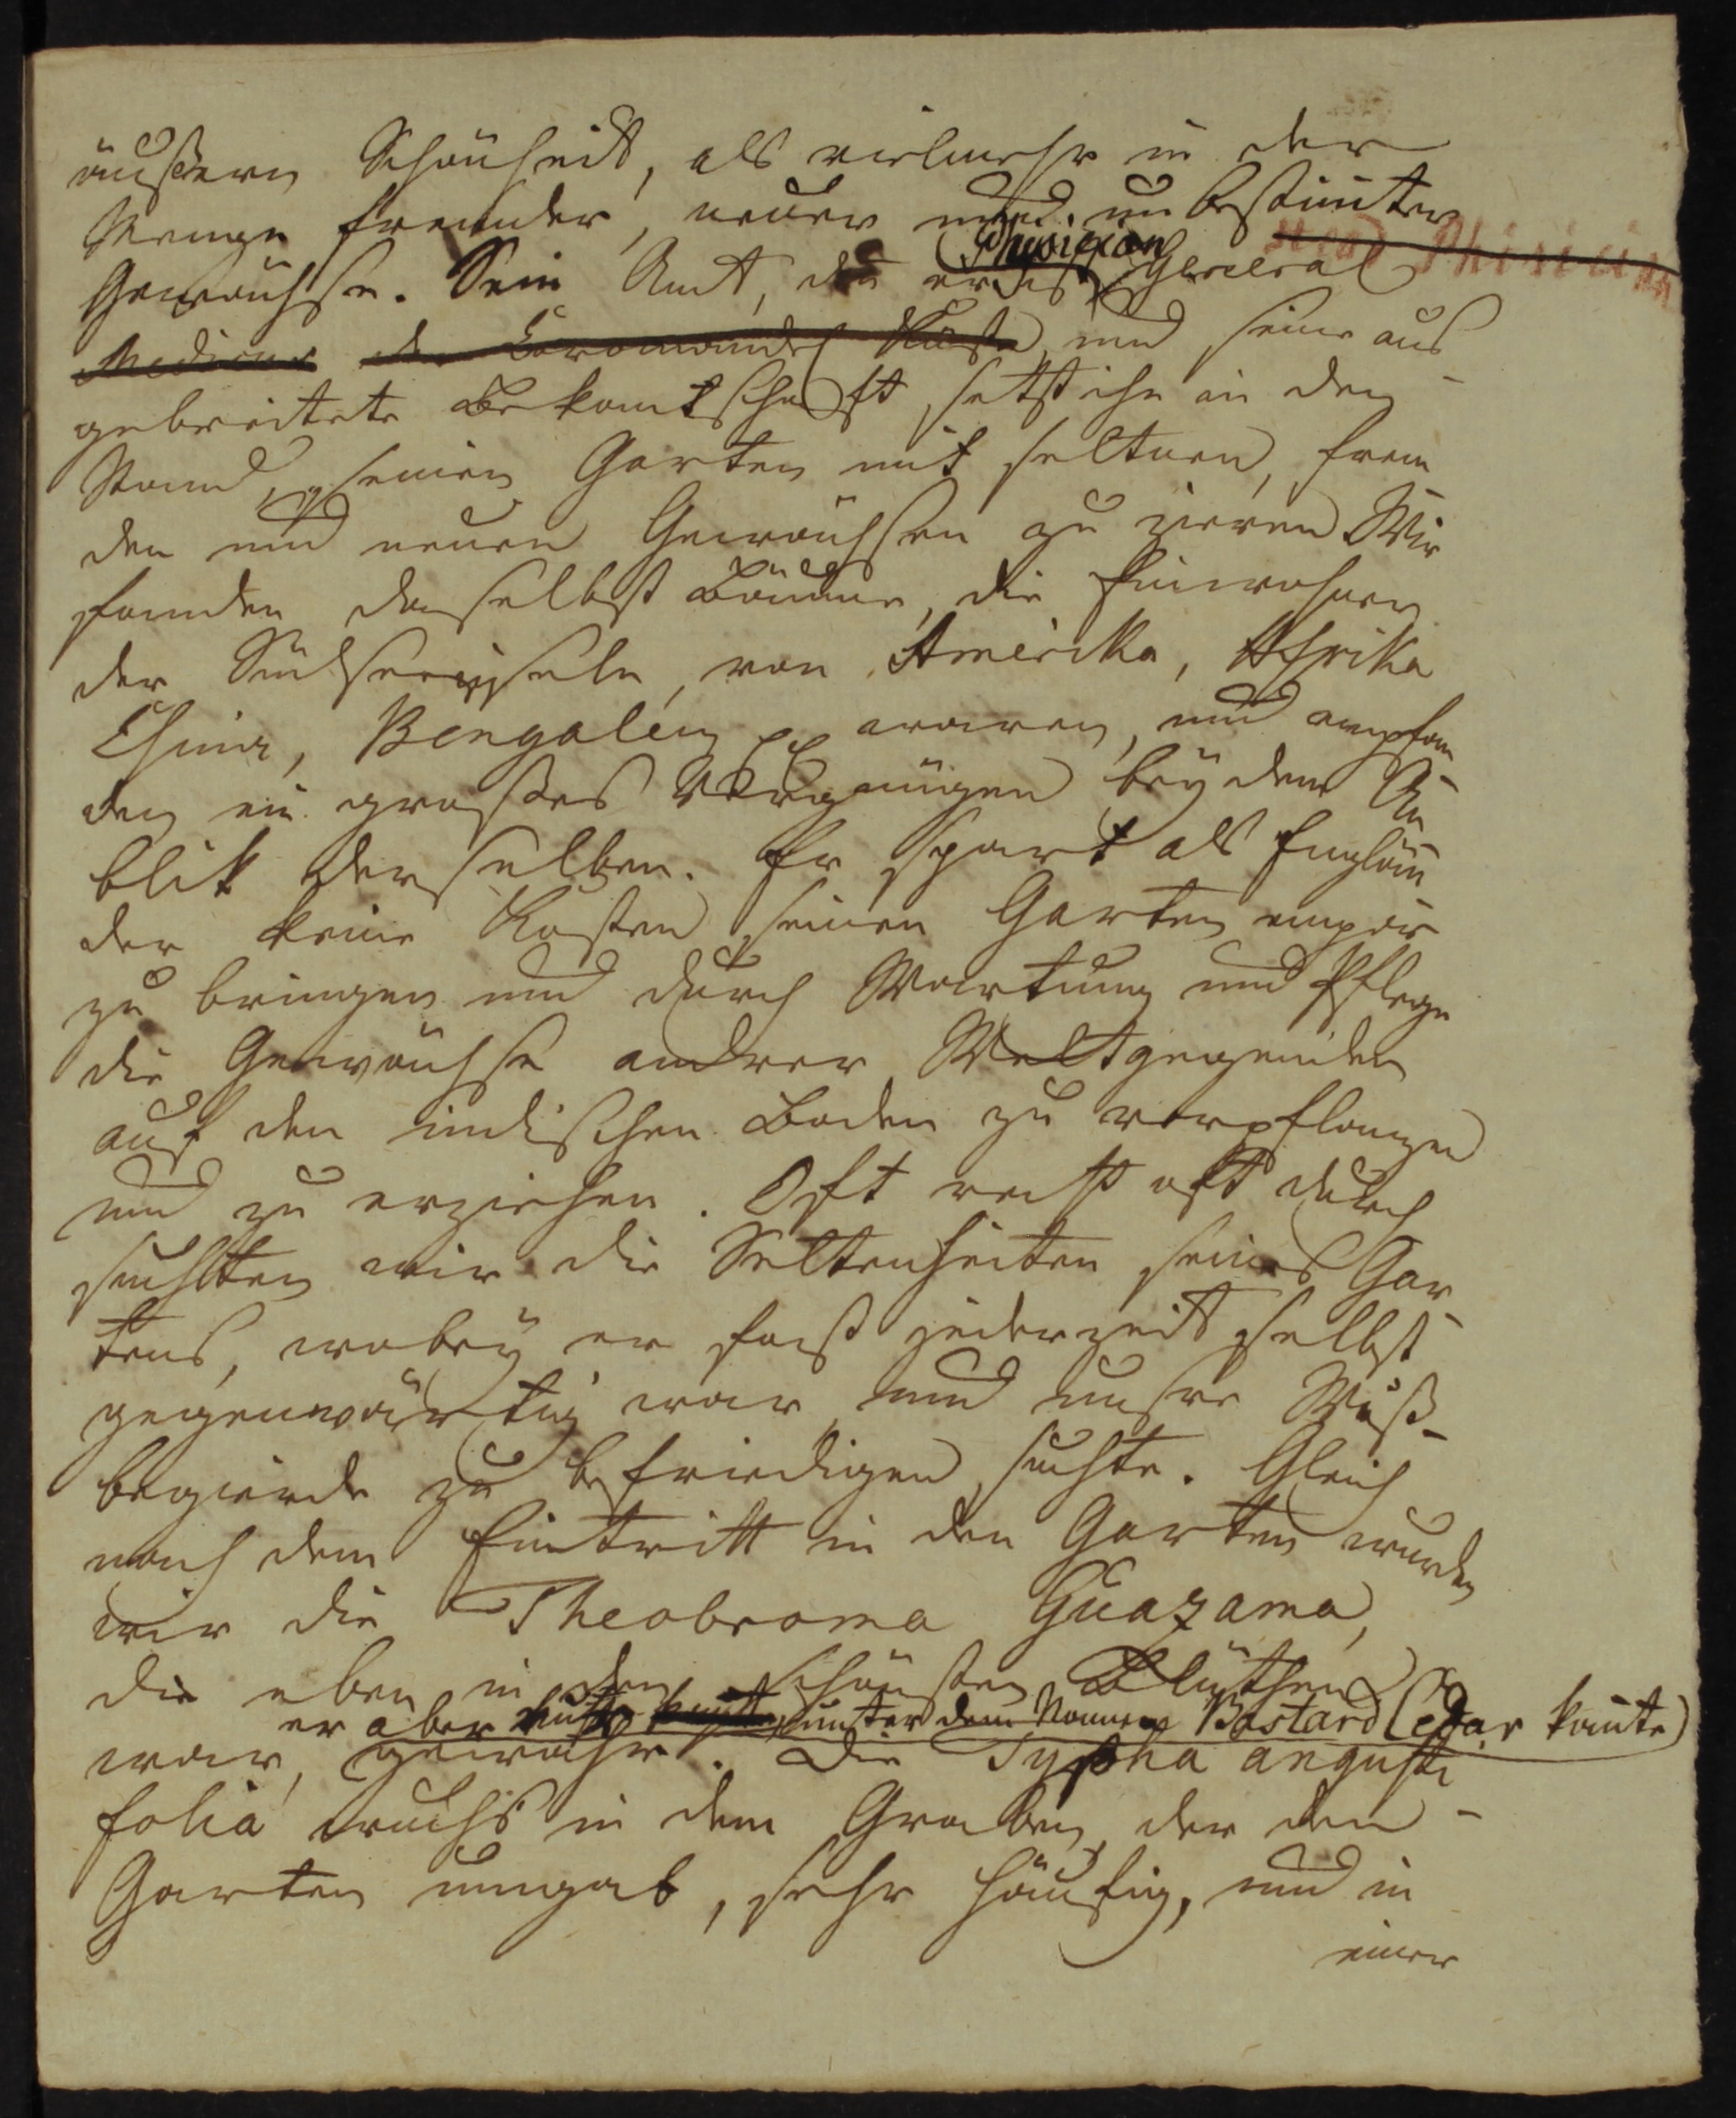 äußern Schönheit, als vielmehr in der
Menge fremder, neuer und unbestimter
Gewächse. Sein Amt, da er ist Physician General
head Phisician
Medicus der Coromandel Küste und seine aus-
gebreitete Bekantschaft, setzt ihn in den
Stand, seinen Garten mit seltnen, frem
den und neuen Gewächsen zu zieren Wir
fanden daselbst Bäume, die Einwohner
der Südseeinseln, von Amerika, Afrika
China, Bengalen waren, und empfan
den ein großes Vergnügen bey dem An
blik derselben. Er spart als Englän
der keine Kosten seinen Garten empor
zu bringen und durch Wartung und Pflege
die Gewächse andrer Weltgegenden
auf den indischen Boden zu verpflanzen
und zu erziehen. Oft recht oft durch
suchten wir die Seltenheiten seines Gar
tens, wobey er fast jederzeit selbst
gegenwärtig war und unsre Wiß-
begierde zu befriedigen suchte. Gleich
nach dem Eintritt in den Garten wurden
wir die Theobroma Guazama,
die eben in den schönsten Blüthen
er aber unter dem Namen Bastard Cedar kante)
war, gewahr. Die Typha angusti
folia wuchs in dem Graben, der den
Garten umgab, sehr häufig, und in
einer